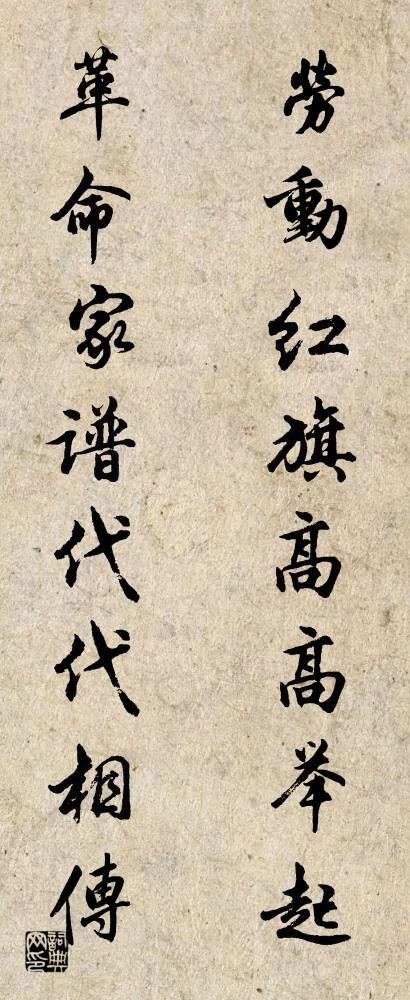 勞動红旗高高举起
革命家谱代代相傳
詞典网印